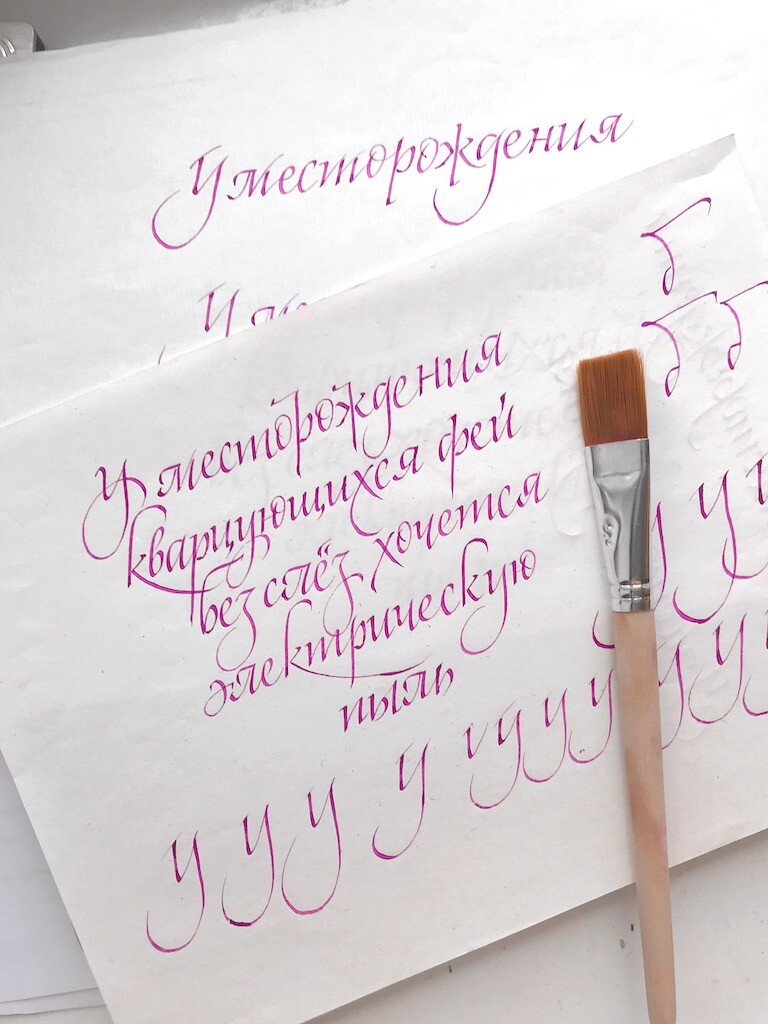 У месторождения
У ме
У месторождения
кварцующихся фей
без слёз хочется
электрическую
пыль
б
б б
у у у
у у у у
у у у у у у у у у